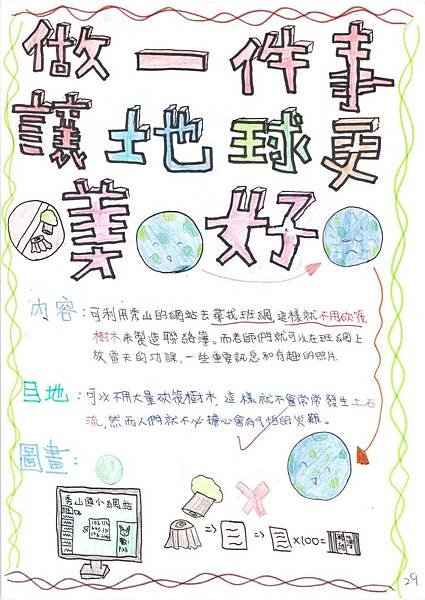 做一件事
讓地球更
美好
內容：可利用秀山的網站去尋找班網，這樣就不用砍伐
樹木來製造聯絡簿。而老師們就可以在班網上
放當天的功課、一些重要訊息和有趣的照片.
目地：可以不用大量砍伐樹木，這樣就不會常常發生土石
流，然而人們就不必擔心會有可怕的災難。
圖畫：
秀山國小網站
⇒ ⇒ ×100=
29